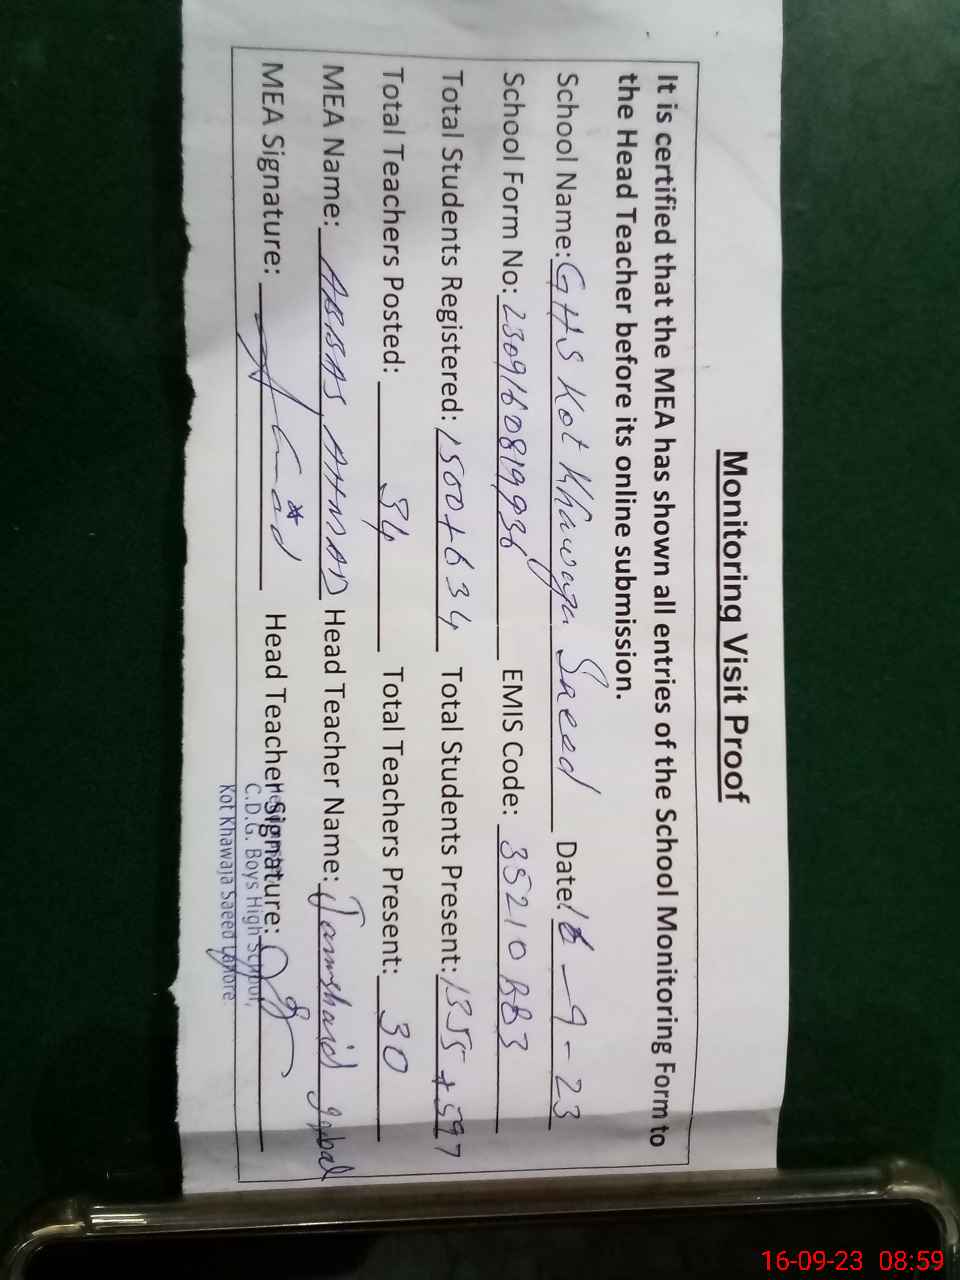 Monitoring Visit Proof
It is certified that the MEA has shown all entries of the School Monitoring Form to
the Head Teacher before its online submission.
School Name: GHS Kot Khawaja Saeed Date: 16-9-23
School Form No: EMIS Code: 35210
Total Students Registered: 1500+634 Total Students Present: 1355+597
Total Teachers Posted: 34 Total Teachers Present: 30
MEA Name: ABBAS AHMAD Head Teacher Name: Jamshaid Iqbal
MEA Signature: Head Teacher Signature:
C.D.G. Boys High School,
Kot Khawaja Saeed Lahore.
16-09-23 08:59